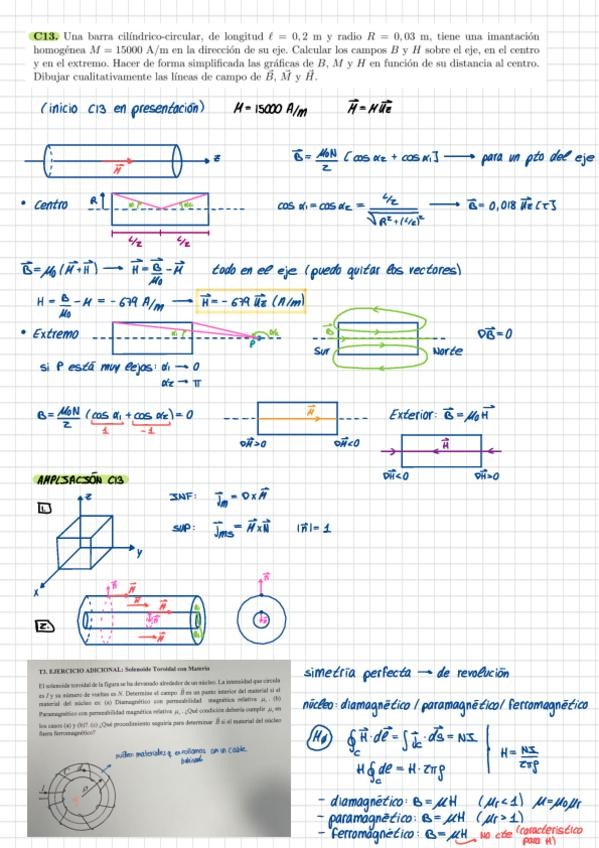 C13. Una barra cilíndrico-circular, de longitud ℓ = 0,2 m y radio R = 0,03 m, tiene una imantación
homogénea M = 15000 A/m en la dirección de su eje. Calcular los campos B y H sobre el eje, en el centro
y en el extremo. Hacer de forma simplificada las gráficas de B, M y H en función de su distancia al centro.
Dibujar cualitativamente las líneas de campo de B⃗, M⃗ y H⃗.
(inicio C13 en presentación) M = 15000 A/m M⃗ = M u⃗z
M⃗ z
B⃗ = μ0N/2 [cos α2 + cos α1] → para un pto del eje
• Centro R α1 α2 L/2 L/2
cos α1 = cos α2 = (L/2)/√(R²+(L/2)²) → B⃗ = 0,018 u⃗z [T]
B⃗ = μ0 (H⃗ + M⃗) → H⃗ = B⃗/μ0 - M⃗ todo en el eje (puedo quitar los vectores)
H = B/μ0 - M = - 679 A/m → H⃗ = - 679 u⃗z (A/m)
• Extremo α1 α2 P B⃗ ∇B⃗ = 0
Sur Norte
si P está muy lejos: α1 → 0
α2 → π
B = μ0N/2 (cos α1 + cos α2) = 0
1 -1
M⃗
∇M⃗>0 ∇M⃗<0
Exterior: B⃗ = μ0H⃗
H⃗
∇H⃗<0 ∇H⃗>0
AMPLIACIÓN C13
1. z y x
INF: J⃗m = ∇ x M⃗
SUP: J⃗ms = M⃗ x N⃗ |n⃗| = 1
2. n⃗ M⃗ M⃗ M⃗ M⃗ n⃗
T3. EJERCICIO ADICIONAL: Solenoide Toroidal con Materia
El solenoide toroidal de la figura se ha devanado alrededor de un núcleo. La intensidad que circula
es I y su número de vueltas es N. Determine el campo B⃗ en un punto interior del material si el
material del núcleo es: (a) Diamagnético con permeabilidad magnética relativa μr. (b)
Paramagnético con permeabilidad magnética relativa μr. ¿Qué condición debería cumplir μr en
los casos (a) y (b)?. (c) ¿Qué procedimiento seguiría para determinar B⃗ si el material del núcleo
fuera ferromagnético?
simetría perfecta → de revolución
núcleo: diamagnético / paramagnético / ferromagnético
∮c H⃗·dℓ⃗ = ∫ J⃗c·ds⃗ = NI
H∮c dℓ = H·2πρ
H = NI/2πρ
- diamagnético: B = μH (μr<1) μ=μ0μr
- paramagnético: B = μH (μr>1)
- ferromagnético: B = μH No cte (característico para H)